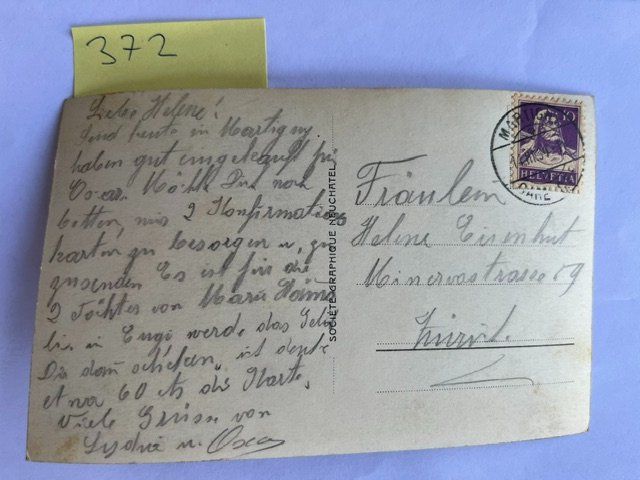 372
Liebe Helene!
Sind heute in Martigny
haben gut eingekauft für
Oscar. Möchte Dich noch
bitten, mir 2 Konfirmations
karten zu besorgen u. zu
zusenden Es ist für die
2 Töchter von Marie
in Engi werde das Geld
Dir dann schicken, ist denke
etwa 60 cts die Karte,
Viele Grüsse von
Lydia u. Oscar
SOCIÉTÉ GRAPHIQUE NEUCHATEL
10
HELVETIA
GARE
Fräulein
Helene Eisenhut
Minervastrasse 69
Zürich.